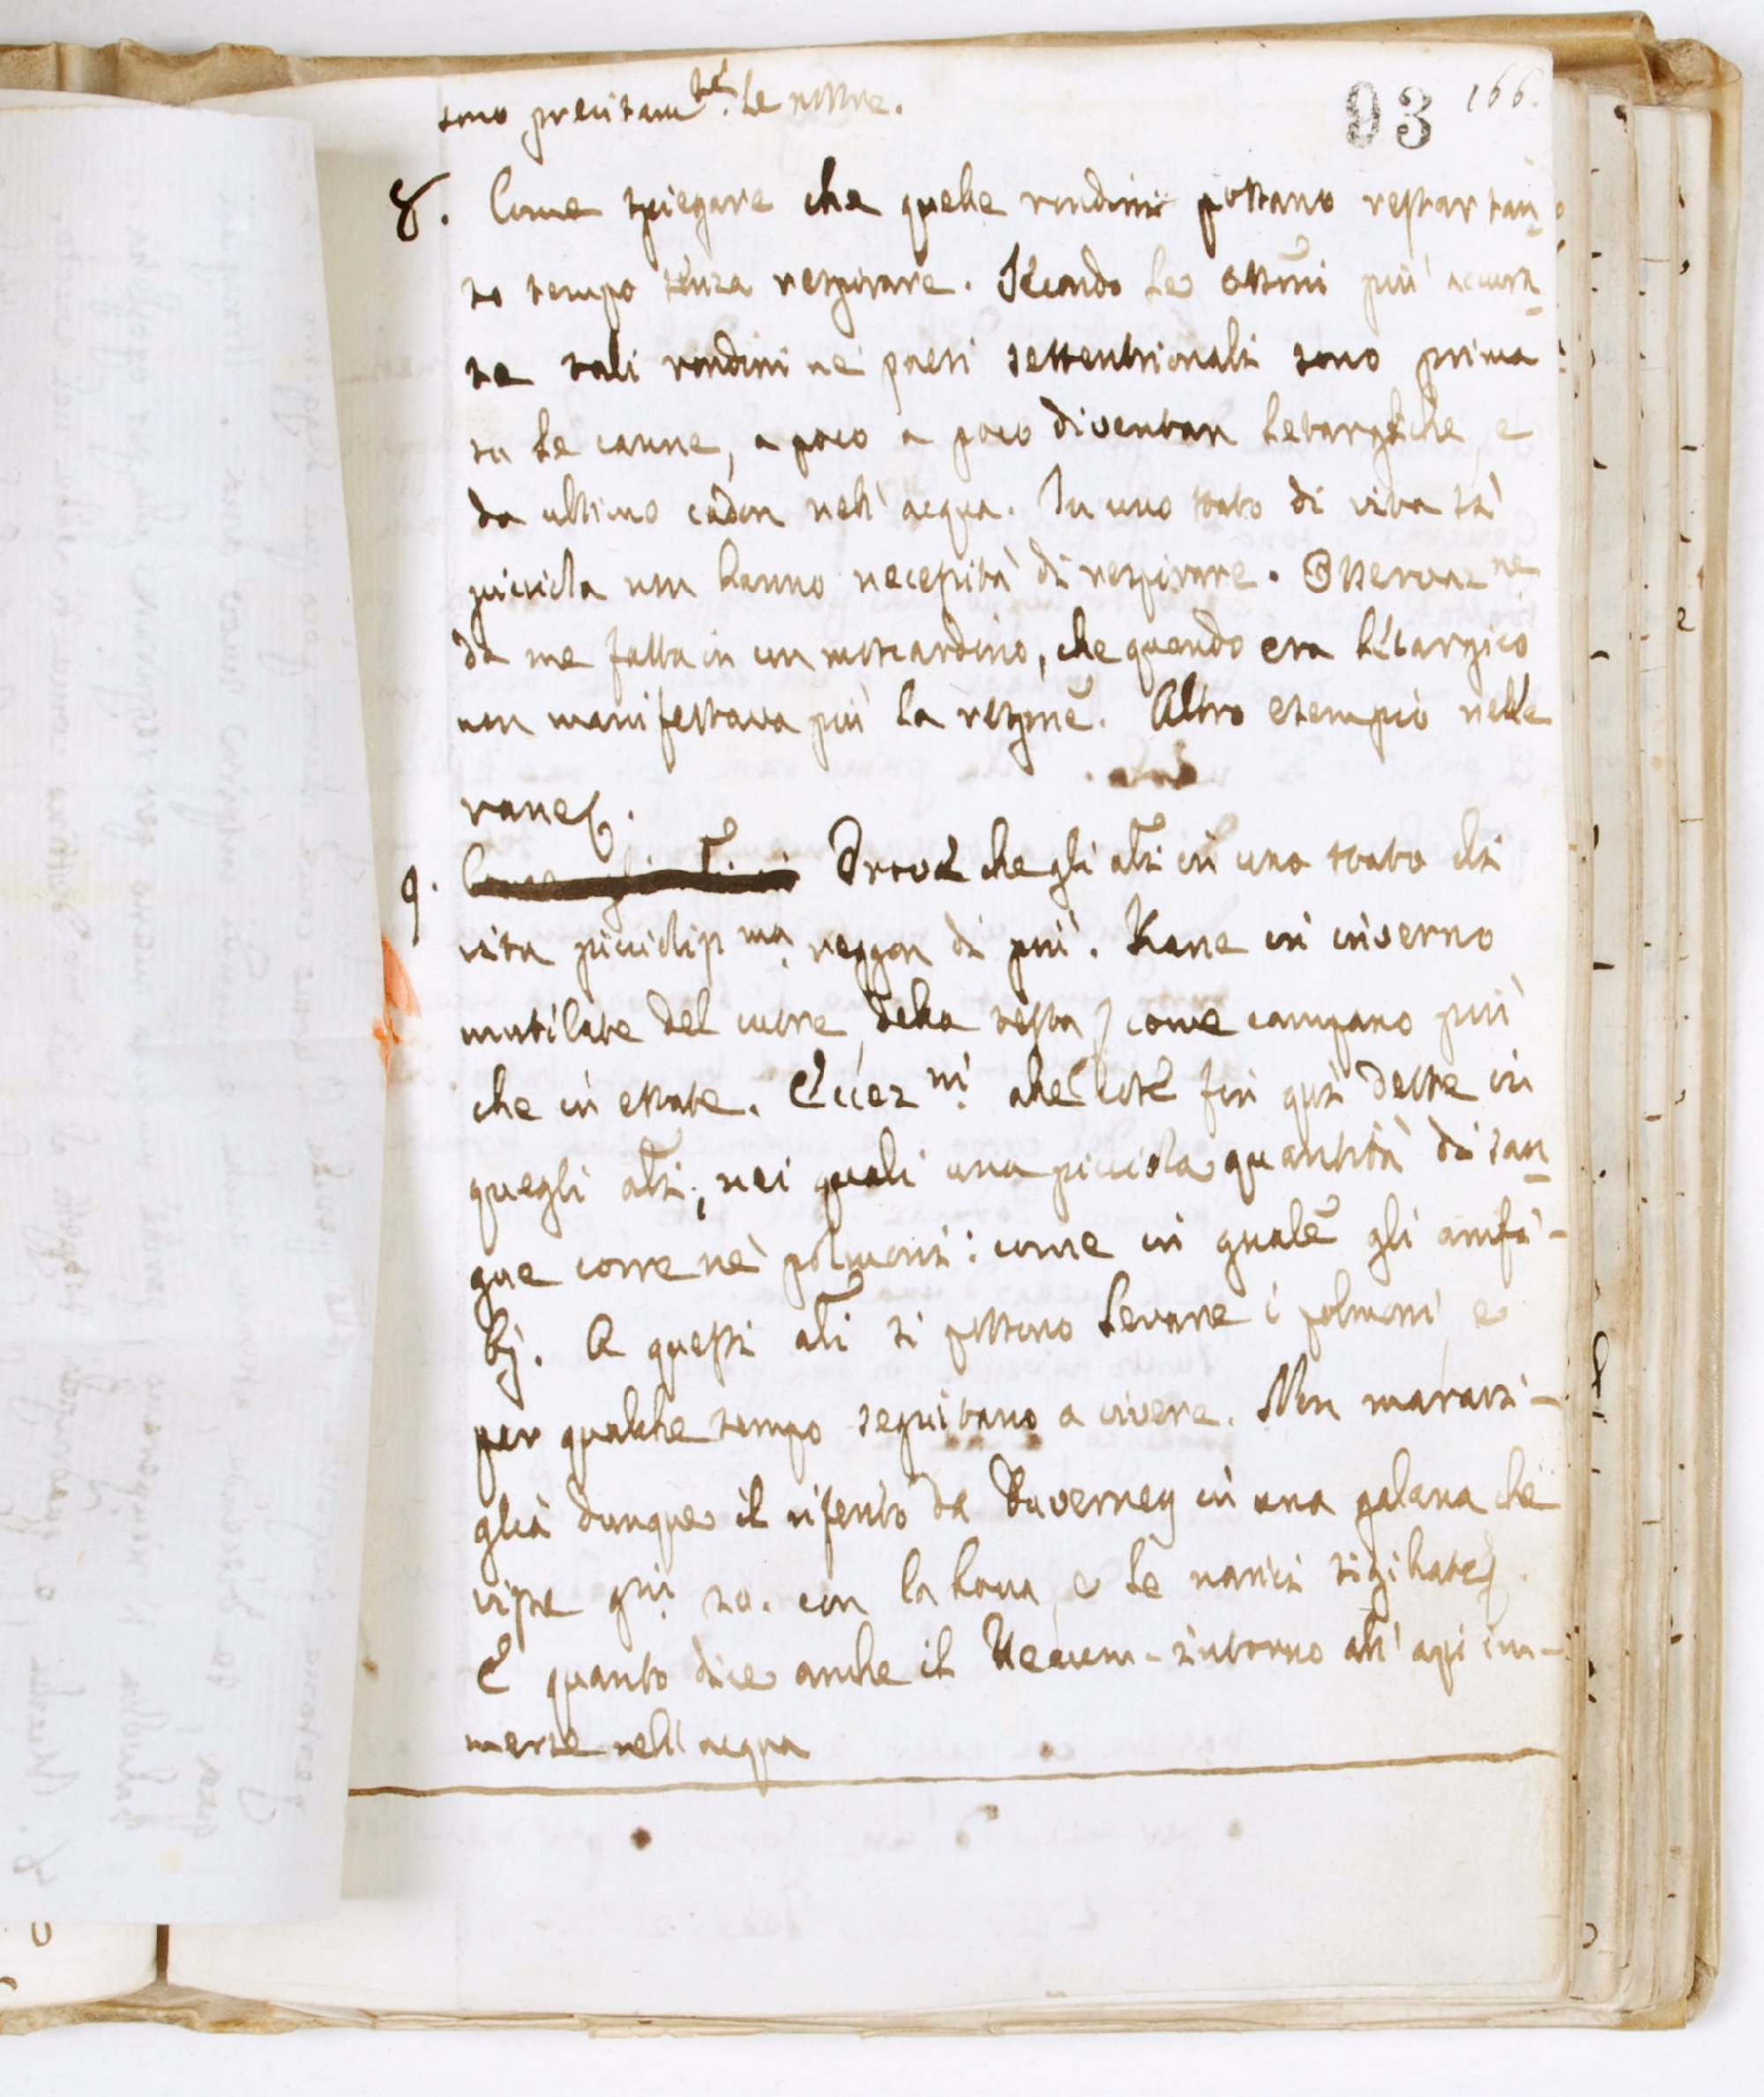 sono precisam.te le nostre.
93 166.
8. Come spiegare che quelle rondini possano restar tan
to tempo senza respirare. Secondo le ossⁿⁱ più accura
te tali rondini ne' paesi settentrionali sono prima
su le canne, a poco a poco diventan letargiche, e
da ultimo cadon nell'acqua. In uno stato di vita sì
picciola non hanno necessità di respirare. Osservaz.ne
da me fatta in un moscardino, che quando era letargico
non manifestava più la respne. Altro esempio nelle
rane.
9. Prova che gli ali in uno stato di
vita picciolissma reggon di più. Rane in inverno
mutilate del cuore, della testa come campano più
che in estate. Eccez.ni alle cose fin qui dette in
quegli ali, nei quali una picciola quantità di san
gue corre ne' polmoni: come in quale gli amfi-
bj. A questi ali si possono levare i polmoni e
per qualche tempo seguitano a vivere. Non maravi-
glia dunque il riferito da Duverney in una galana che
visse più con la bocca, e le narici sigillate.
E quanto dice anche il intorno all'api im-
merse nell'acqua